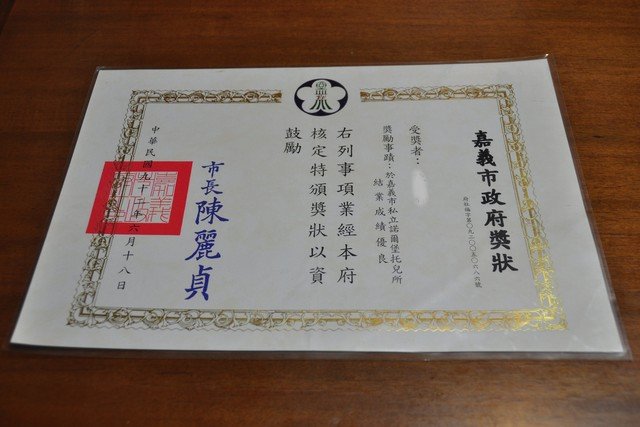 嘉義市政府獎狀
府社福字第〇九二〇〇五〇六八六號
受獎者：
獎勵事蹟：於嘉義市私立諾爾堡托兒所
結業成績優良
右列事項業經本府
核定特頒獎狀以資
鼓勵
市長陳麗貞
中華民國九十二年六月十八日